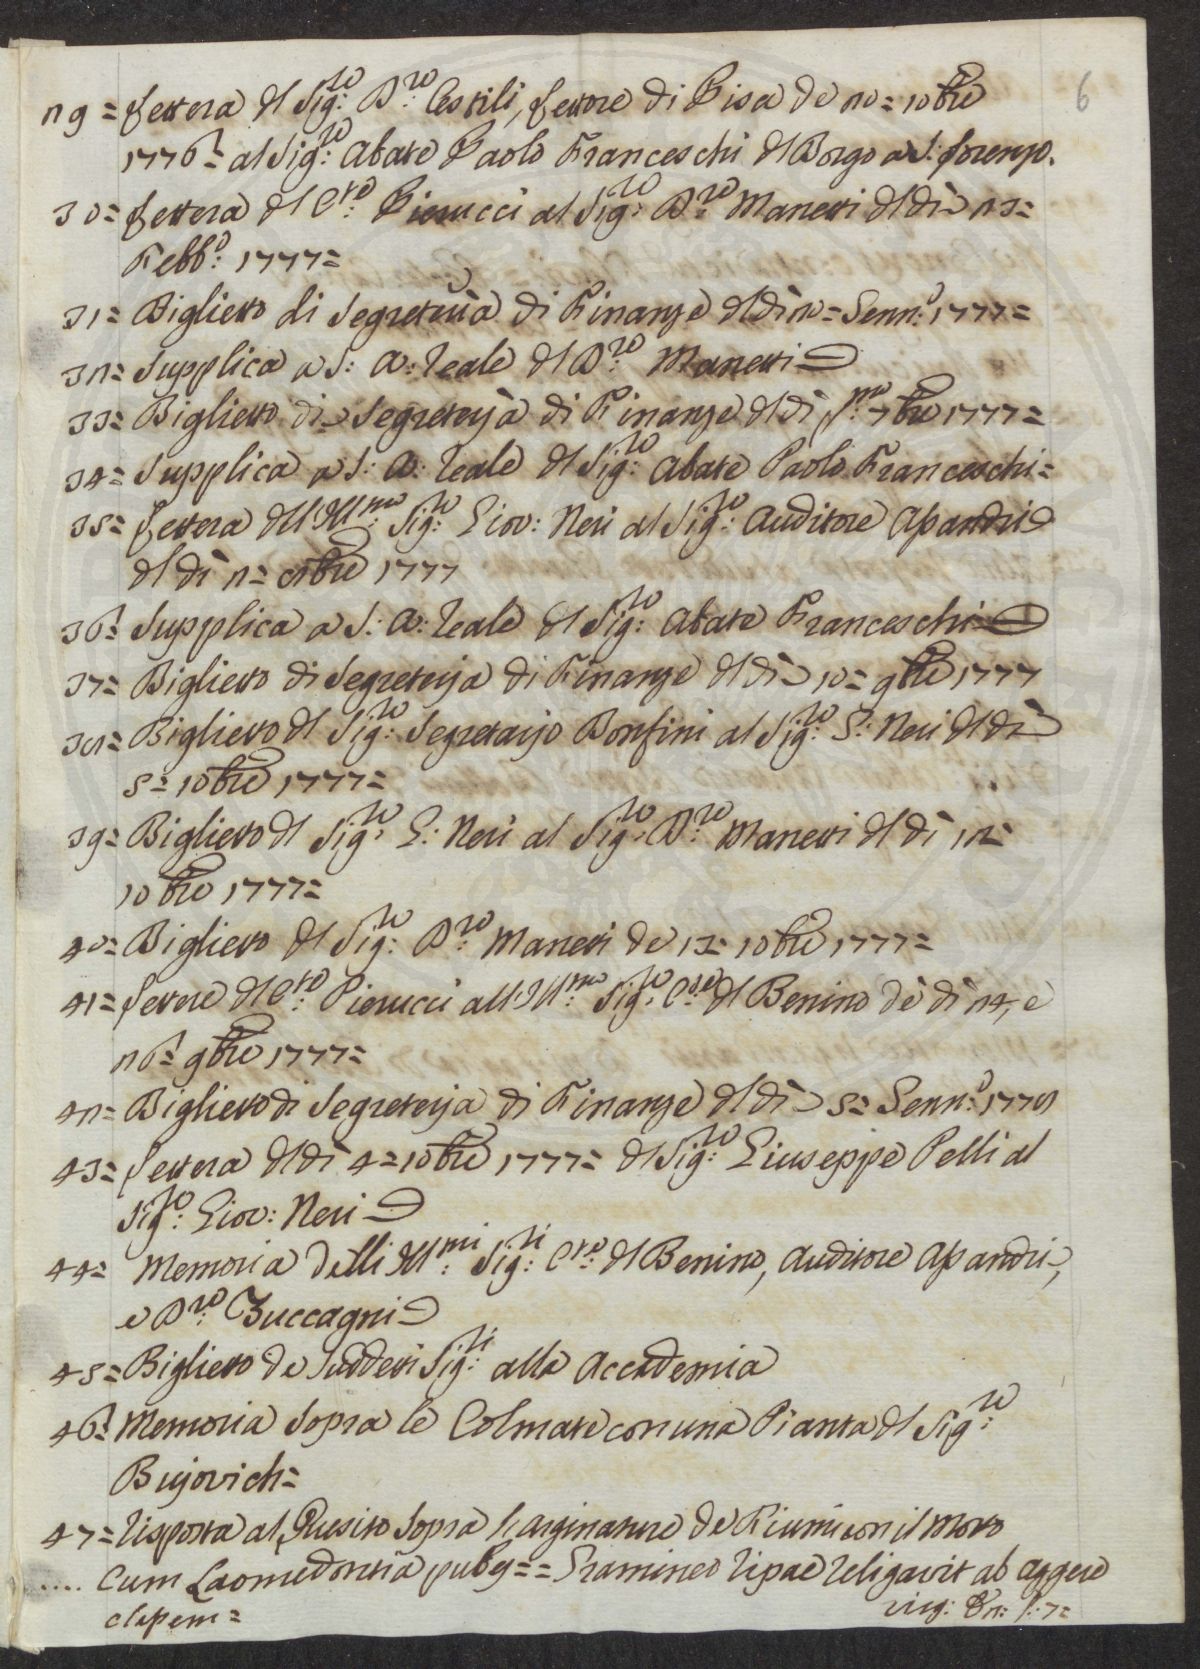 6
29 = Lettera del Sig:re D:re Cestili, Lettore di Pisa de 20 = 10bre
1776 = al Sig:re Abate Paolo Franceschi del Borgo a S: Lorenzo.
30 = Lettera del C:re Pierucci al Sig:re D:re Manetti del dì 23 =
Febb:o 1777 =
31 = Biglietto di Segreteria di Finanze del dì 20 = Genn:o 1777 =
32 = Supplica a S: A: Reale del D:re Manetti
33 = Biglietto di Segreteria di Finanze del dì p:mo 7bre 1777 =
34 = Supplica a S: A: Reale del Sig:re Abate Paolo Franceschi =
35 = Lettera dell'Ill:mo Sig:re Giov: Neri al Sig:re Auditore Apandri
del dì 2 = 8bre 1777
36 = Supplica a S: A: Reale del Sig:re Abate Franceschi
37 = Biglietto di Segreteria di Finanze del dì 10 = 9bre 1777
38 = Biglietto del Sig:re Segretario Bonfini al Sig:re G: Neri del dì
5 = 10bre 1777 =
39 = Biglietto del Sig:re G: Neri al Sig:re D:re Manetti del dì 12 =
10bre 1777 =
40 = Biglietto del Sig:re D:re Manetti de 13 = 10bre 1777 =
41 = Lettere del C:re Pierucci all'Ill:mo Sig:re del Benino de dì 24, e
26 = 9bre 1777 =
42 = Biglietto di Segreteria di Finanze del dì 5 = Genn:o 1778
43 = Lettera del dì 4 = 10bre 1777 = del Sig:re Giuseppe Pelli al
Sig:re Giov: Neri
44 = Memoria delli Ill:mi Sig:ri C:re del Benino, Auditore Apandri,
e D:re Zuccagni
45 = Biglietto de Suddetti Sig:ri alla Accademia
46 = Memoria Sopra le Colmate con una Pianta del Sig:re
Bujovich =
47 = Risposta al Quesito Sopra l'arginature de Fiumi con il Motto
.... Cum Laomedontia pubes == Gramineo ripae religavit ab aggere
classem =
virg: En: l: 7 =